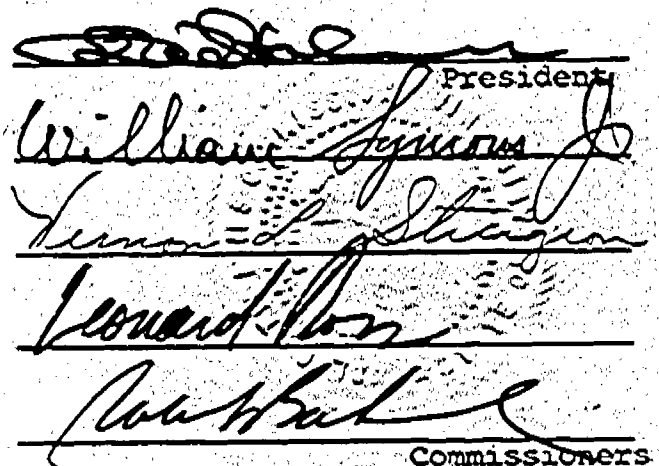 President
William Symons Jr
Vernon L. Sturgeon
Leonard Ross
Commissioners